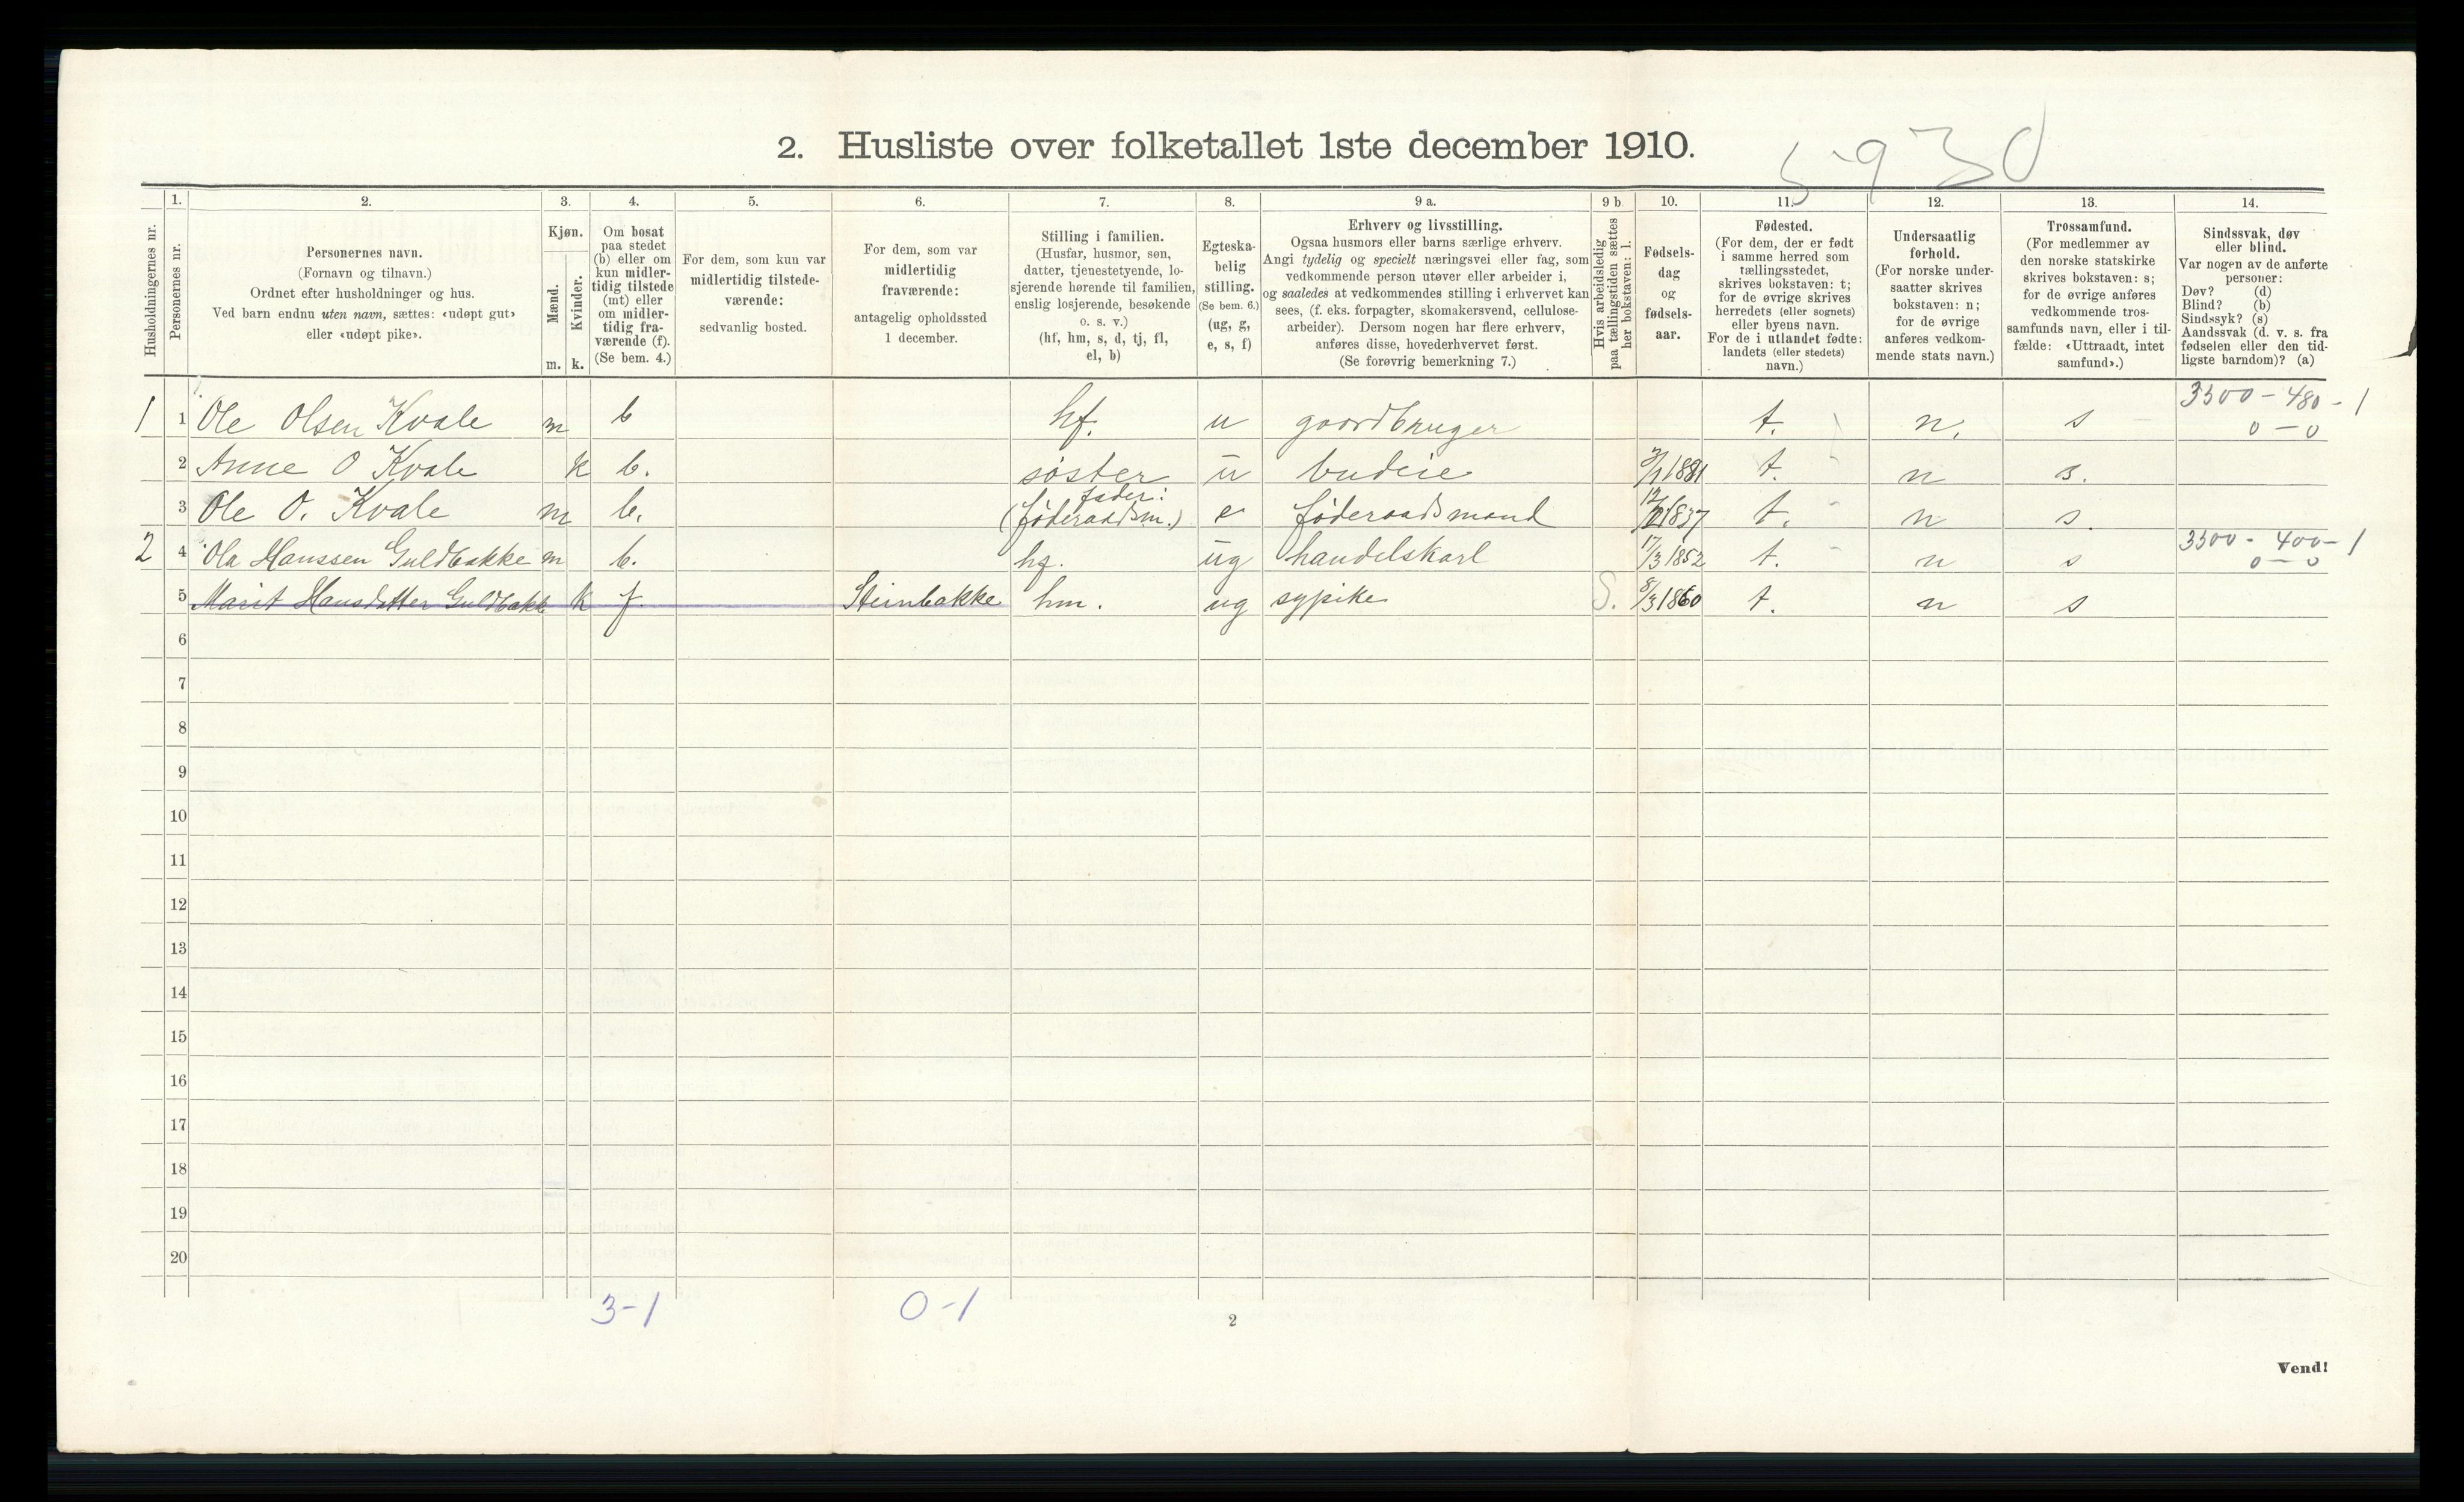 2. Husliste over folketallet 1ste december 1910.
5930
1. 2. 3. 4. 5. 6. 7. 8. 9 a. 9 b. 10. 11. 12. 13. 14.
Husholdningernes nr.
Personernes nr.
Personernes navn.
(Fornavn og tilnavn.)
Ordnet efter husholdninger og hus.
Ved barn endnu uten navn, sættes: «udøpt gut»
eller «udøpt pike».
Kjøn.
Mænd.
Kvinder.
m. k.
Om bosat
paa stedet
(b) eller om
kun midler-
tidig tilstede
(mt) eller
om midler-
tidig fra-
værende (f).
(Se bem. 4.)
For dem, som kun var
midlertidig tilstede-
værende:
sedvanlig bosted.
For dem, som var
midlertidig
fraværende:
antagelig opholdssted
1 december.
Stilling i familien.
(Husfar, husmor, søn,
datter, tjenestetyende, lo-
sjerende hørende til familien,
enslig losjerende, besøkende
o. s. v.)
(hf, hm, s, d, tj, fl,
el, b)
Egteska-
belig
stilling.
(Se bem. 6.)
(ug, g,
e, s, f)
Erhverv og livsstilling.
Ogsaa husmors eller barns særlige erhverv.
Angi tydelig og specielt næringsvei eller fag, som
vedkommende person utøver eller arbeider i,
og saaledes at vedkommendes stilling i erhvervet kan
sees, (f. eks. forpagter, skomakersvend, cellulose-
arbeider). Dersom nogen har flere erhverv,
anføres disse, hovederhvervet først.
(Se forøvrig bemerkning 7.)
Hvis arbeidsledig
paa tællingstiden sættes
her bokstaven: l.
Fødsels-
dag
og
fødsels-
aar.
Fødested.
(For dem, der er født
i samme herred som
tællingsstedet,
skrives bokstaven: t;
for de øvrige skrives
herredets (eller sognets)
eller byens navn.
For de i utlandet fødte:
landets (eller stedets)
navn.)
Undersaatlig
forhold.
(For norske under-
saatter skrives
bokstaven: n;
for de øvrige
anføres vedkom-
mende stats navn.)
Trossamfund.
(For medlemmer av
den norske statskirke
skrives bokstaven: s;
for de øvrige anføres
vedkommende tros-
samfunds navn, eller i til-
fælde: «Uttraadt, intet
samfund».)
Sindssvak, døv
eller blind.
Var nogen av de anførte
personer:
Døv? (d)
Blind? (b)
Sindssyk? (s)
Aandssvak (d. v. s. fra
fødselen eller den tid-
ligste barndom)? (a)
3300 - 480 - 1
1 1 Ole Olsen Kvale m b hf. u gaardbruger t. n. s 0 - 0
2 Anne O Kvale k b. søster u budeie 1881 t. n s.
fader:
3 Ole O. Kvale m b. (føderaadsm.) e føderaadsmand 1837 t. n s.
3300 - 400 - 1
2 4 Ola Hanssen Guldbakke m b. hf. ug handelskarl 17/3 1852 t. n s 0 - 0
5 Marit Hansdatter Guldbakk k f Steinbakke hm. ug sypike S. 8/3 1860 t. n s
6
7
8
9
10
11
12
13
14
15
16
17
18
19
20
3-1 0-1
2
Vend!